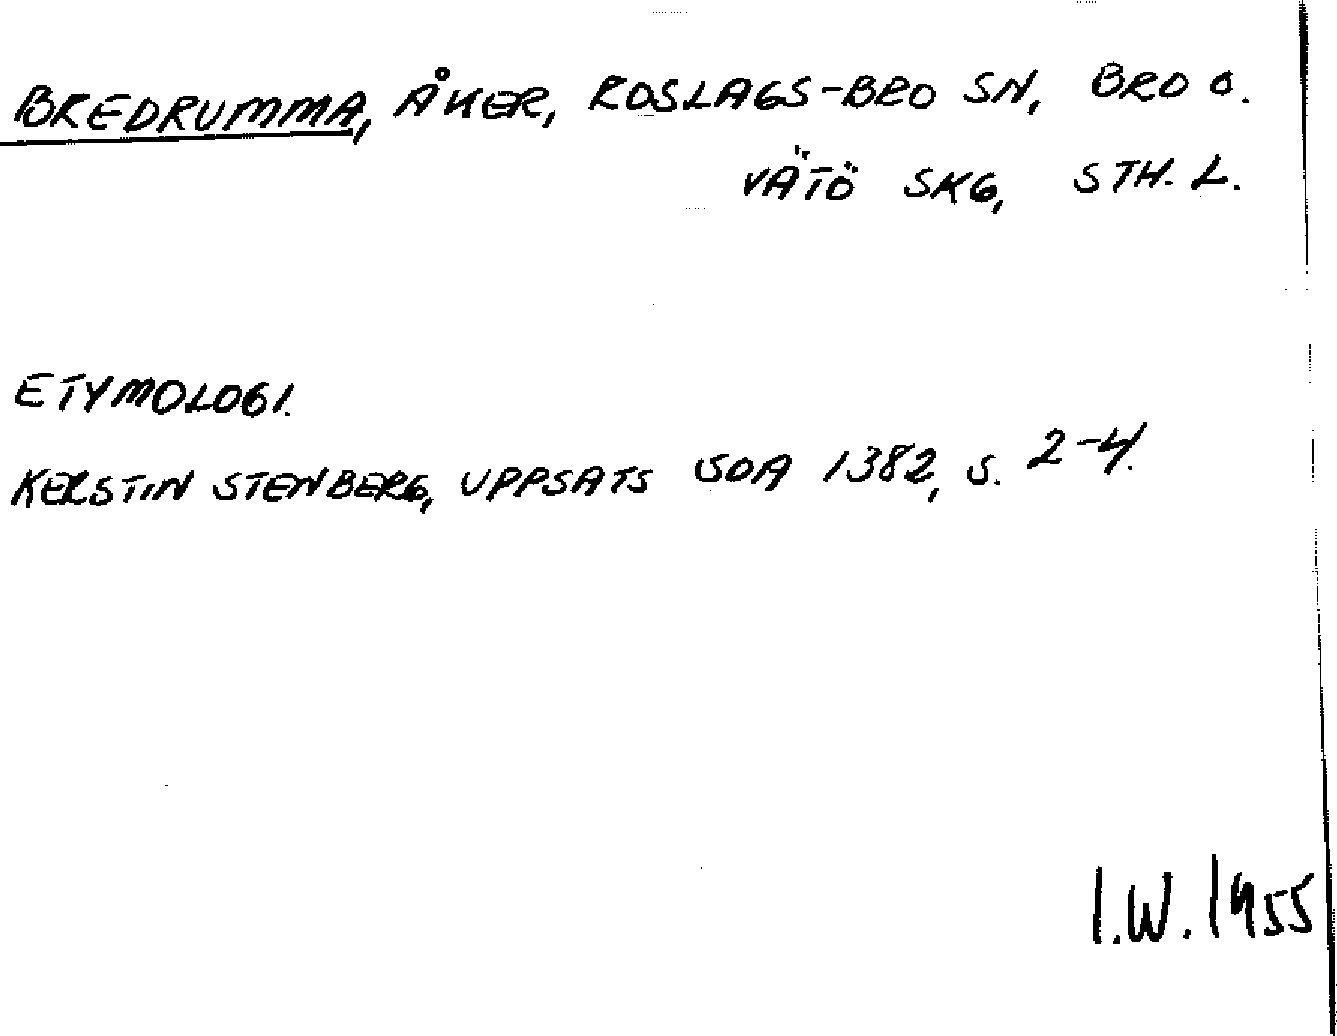 BREDRUMMA, ÅKER, ROSLAGS-BRO SN, BRO O.
VÄTÖ SKG, STH. L.
ETYMOLOGI.
KERSTIN STENBERG, UPPSATS SOA 1382, S. 2-4.
I.W. 1955